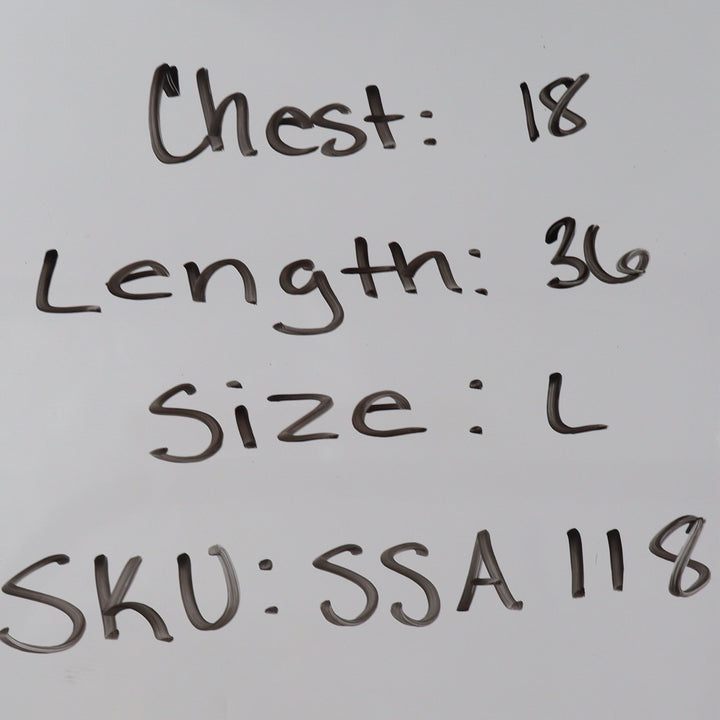 Chest: 18
Length: 36
Size: L
SKU: SSA 118